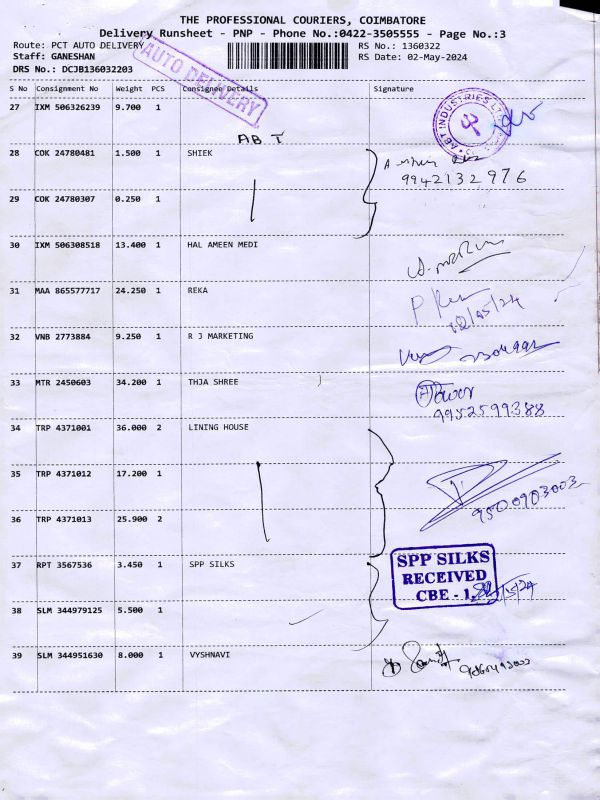 THE PROFESSIONAL COURIERS, COIMBATORE
Delivery Runsheet - PNP - Phone No.:0422-3505555 - Page No.:3
Route: PCT AUTO DELIVERY RS No.: 1360322
Staff: GANESHAN RS Date: 02-May-2024
DRS No.: DCJB136032203
AUTO DELIVERY
S No Consignment No Weight PCS Consignee Details Signature
27 IXM 506326239 9.700 1
ABT INDUSTRIES LTD
ABT
28 COK 24780481 1.500 1 SHIEK
9942132976
29 COK 24780307 0.250 1
30 IXM 506308518 13.400 1 HAL AMEEN MEDI
31 MAA 865577717 24.250 1 REKA
32 VNB 2773884 9.250 1 R J MARKETING
33 MTR 2450603 34.200 1 THJA SHREE
9952599388
34 TRP 4371001 36.000 2 LINING HOUSE
35 TRP 4371012 17.200 1
9500903003
36 TRP 4371013 25.900 2
37 RPT 3567536 3.450 1 SPP SILKS
SPP SILKS
RECEIVED
CBE - 1.
38 SLM 344979125 5.500 1
39 SLM 344951630 8.000 1 VYSHNAVI